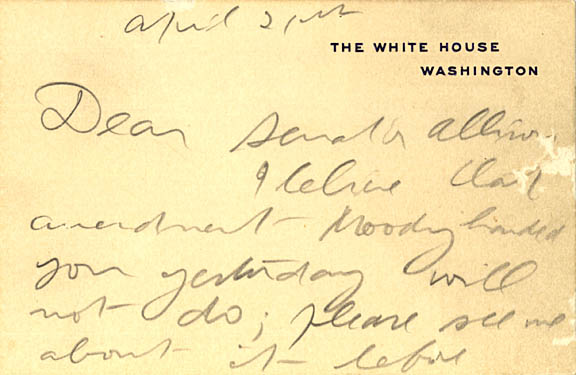 April 21st
THE WHITE HOUSE
WASHINGTON
Dear Senator Allison,
I believe that
amendment Moody handed
you yesterday will
not do; please see me
about it before